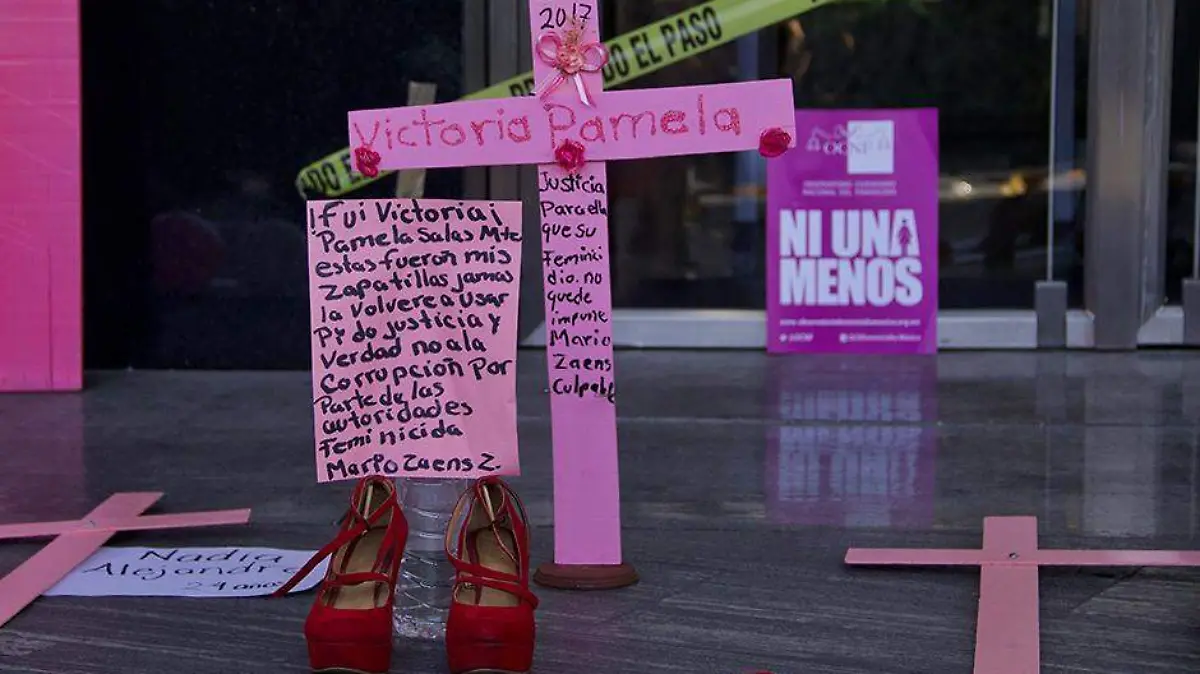 2017
DO EL PASO
DO EL P
Victoria Pamela
Justicia
Para ella
que su
Femini
dio. no
quede
impune
Mario
Zaens
Culpable
¡Fui Victoria¡
Pamela Salas Mte
estas fueron mis
Zapatillas jamas
la volvere a usar
Pido justicia y
verdad no a la
Corrupción Por
Parte de las
autoridades
Feminicida
Mario Zaens Z.
OCNF
NI UNA
MENOS
Nadia
Alejandr
24 años